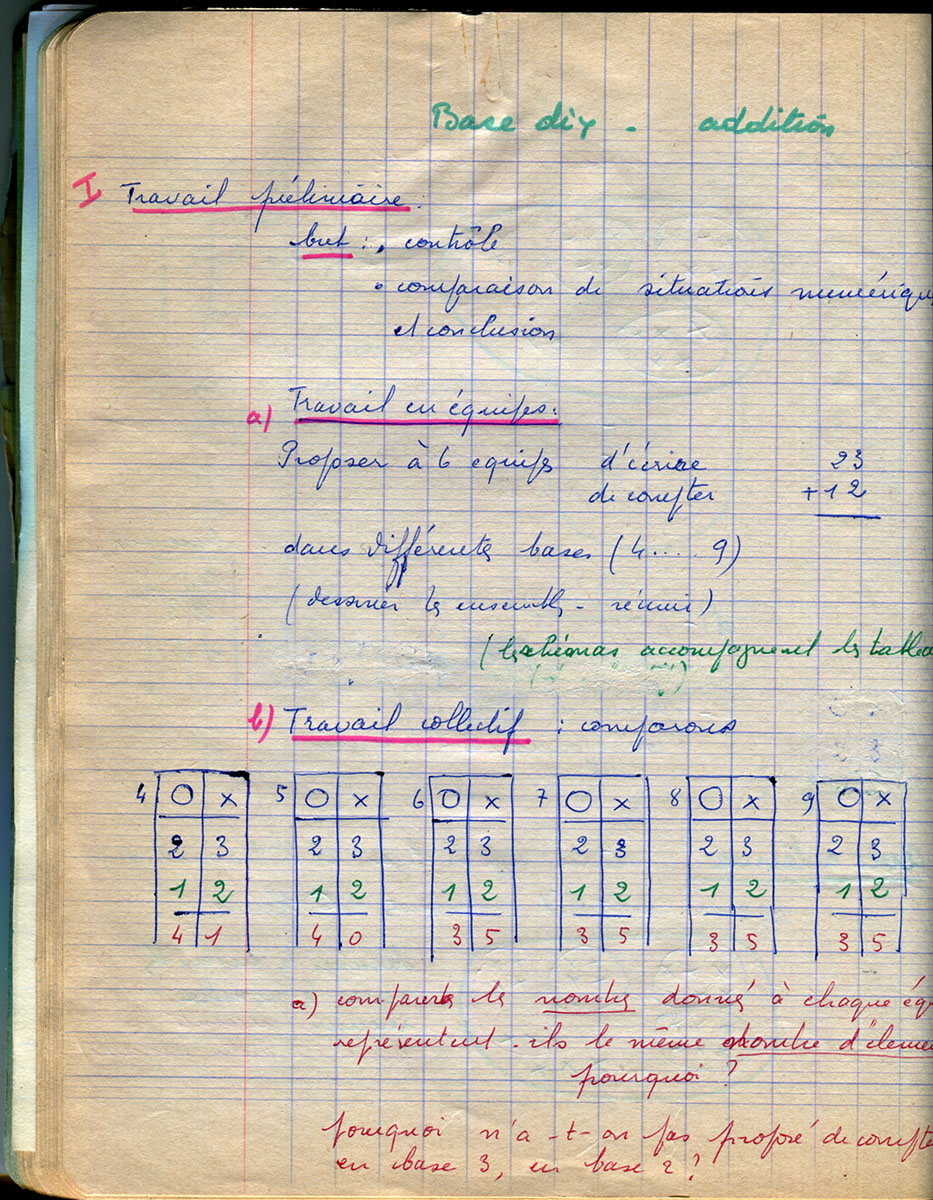 Base dix - addition
I Travail préliminaire :
but : • contrôle
• comparaison de situations numérique
et conclusion
a) Travail en équipes :
Proposer à 6 equipes d'écrire 23
de compter +12
dans différentes bases (4.... 9)
(dessiner les ensembles - réunir)
(les schémas accompagnent les tablea
b) Travail collectif : comparons
4 O x 5 O x 6 O x 7 O x 8 O x 9 O x
2 3 2 3 2 3 2 3 2 3 2 3
1 2 1 2 1 2 1 2 1 2 1 2
4 1 4 0 3 5 3 5 3 5 3 5
a) comparer les nombres donnés à chaque équ
représentent-ils le même nombre d'éleme
pourquoi ?
pourquoi n'a-t-on pas proposé de compte
en base 3, en base 2 ?